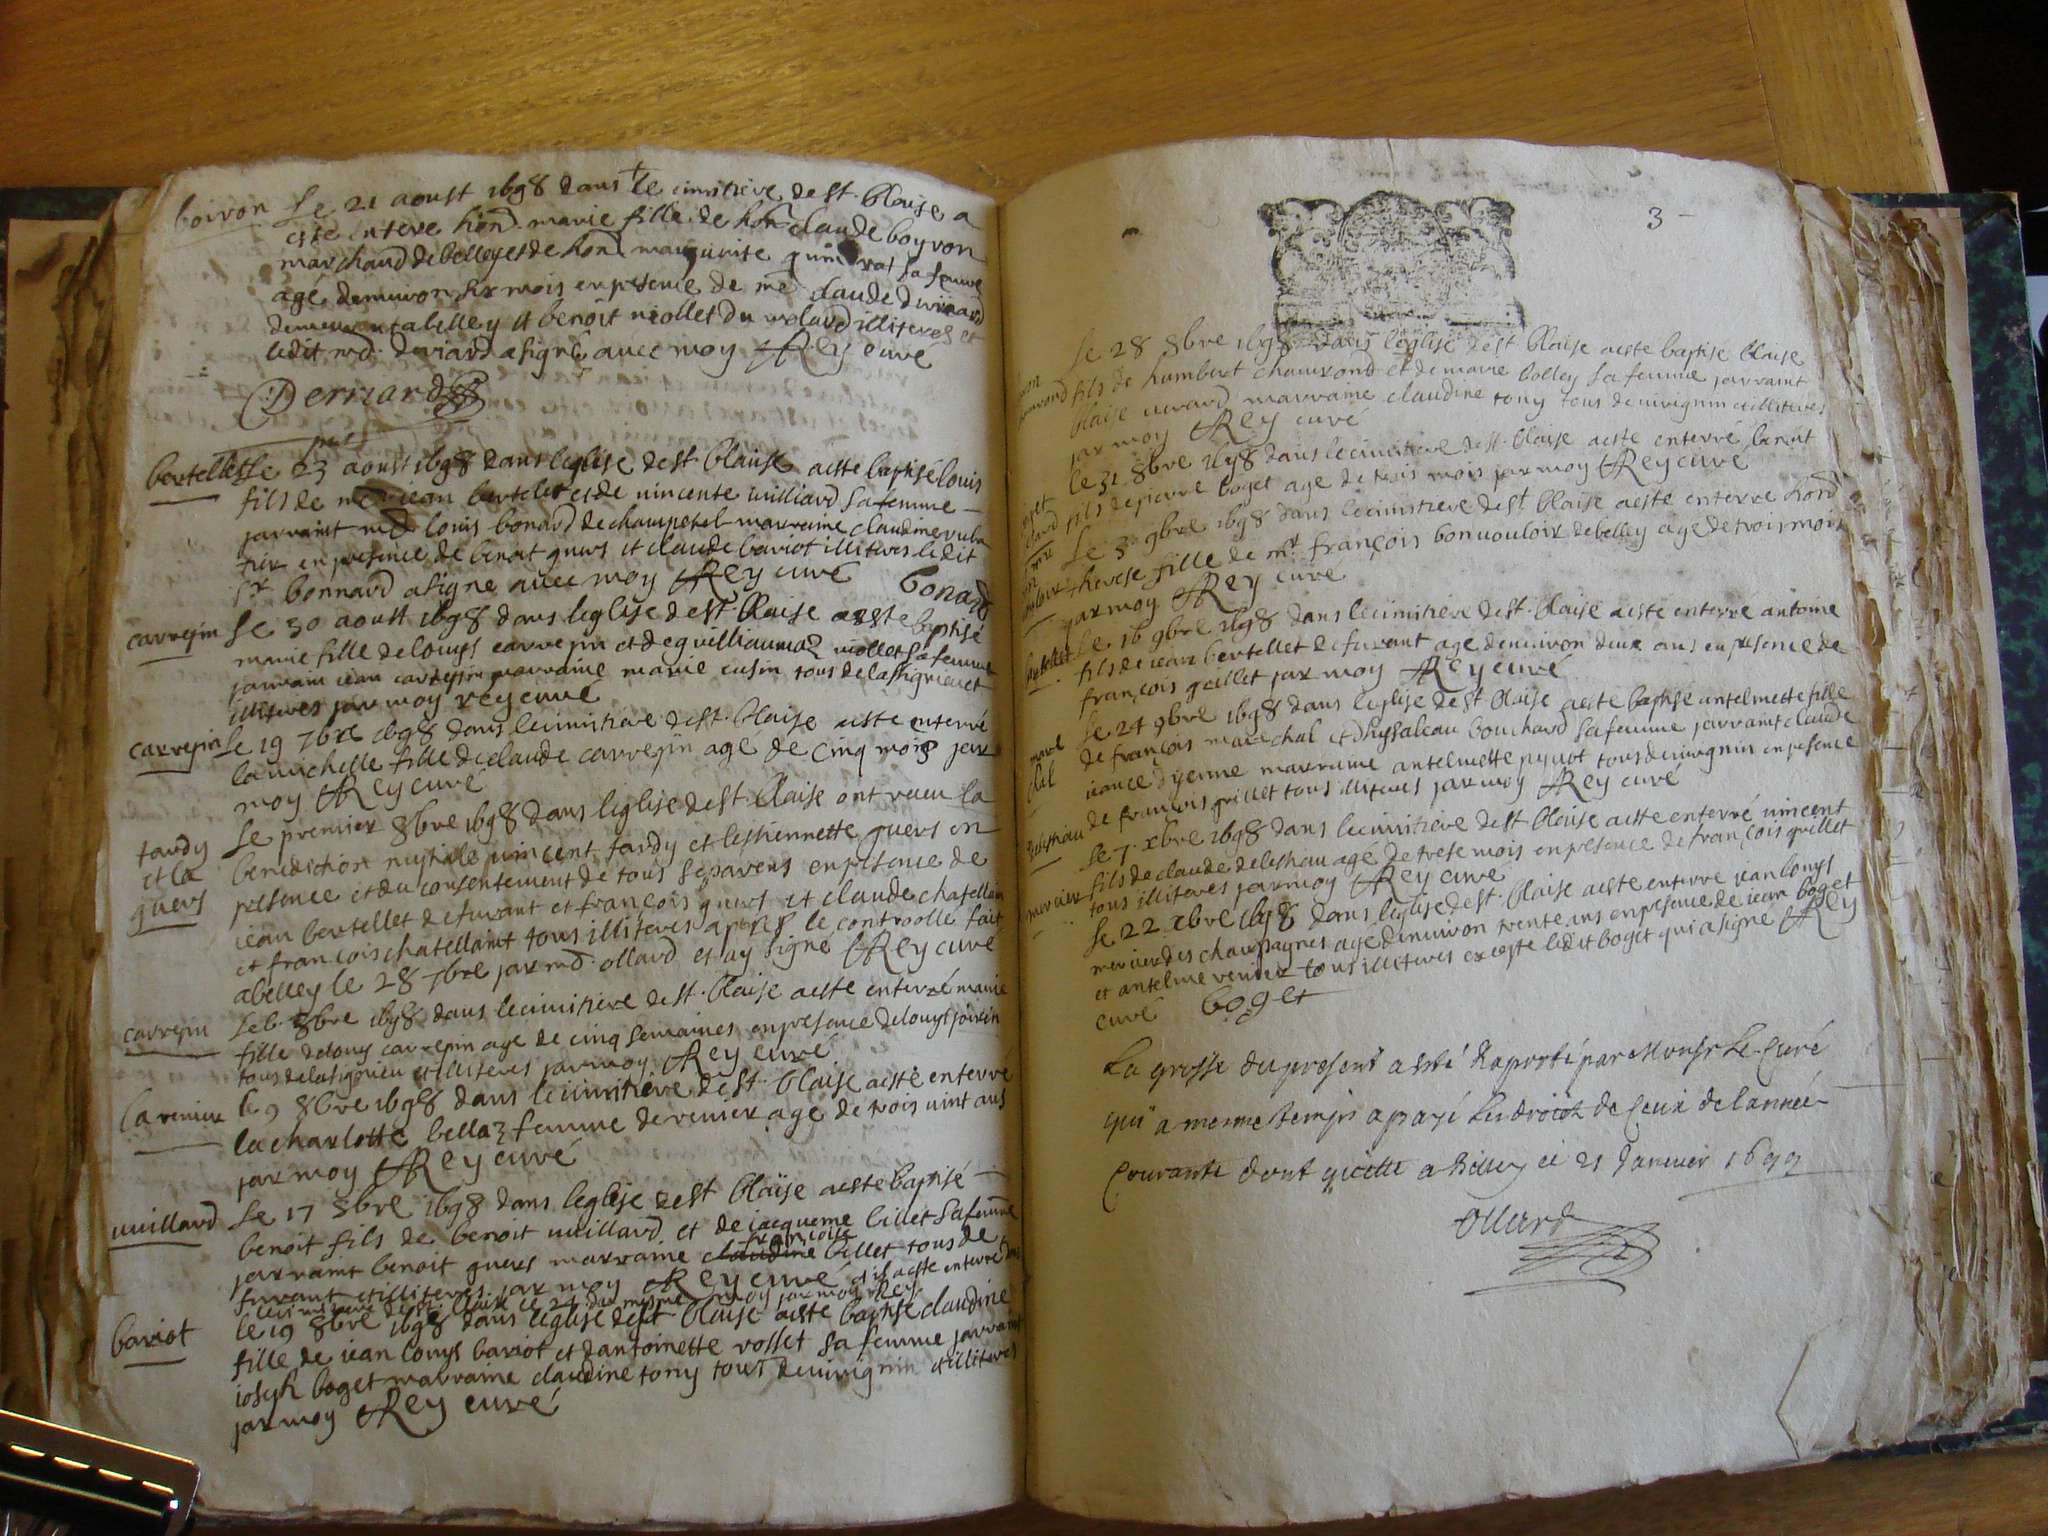 boiron Le 21 aoust 1698 dans le cimitiere de st. blaise a
este entere hon. marie fille de hon. claude boyron
marchand de belley et de hon. marguerite sa femme
age denuiron six mois en presence de me claude
demeurant a belley et benoit niollet du molard illiteres et
ledit md. deviard a signé auec moy Rey curé
bertellet Le 23 aoust 1698 dans leglise de st blaise a este baptisé louis
fils de jean bertelet et de uincente uilliard sa femme
parraint md louis bonard de champetel marraine claudine
en presence de benoit guers et claude bariot illiteres ledit
sr bonnard a signe auec moy Rey curé bonard
carrepin Le 30 aoust 1698 dans leglise de st. blaise a este baptisé
marie fille de louys carrepin et de guilliaumaz niollet sa femme
parrain iean carrepin marraine marie cusin tous de lassignieu et
illiteres par moy rey curé
carrepin Le 19 7bre 1698 dans le cimitiere de st. blaise a este enterré
la michelle fille de claude carrepin agé de cinq mois par
moy Rey curé
tardy Le premier 8bre 1698 dans leglise de st. blaise ont receu la
et la benediction nuptiale uincent tardy et lestiennette guers en
guers presence et du consentement de tous se parens en presence de
iean bertellet de furant et françois guers et claude chatellain
et francois chatellaint tous illiteres apres le controolle fait
a belley le 28 7bre par md. ollard et ay signé Rey curé
carrepin Le 6. 8bre 1698 dans le cimitiere de st. blaise a este enterré marie
fille de louy carrepin age de cinq semaines en presence de louys
tous de lasignieu et illiteres par moy Rey curé
la renier le 9 8bre 1698 dans le cimitiere de st. blaise a este enterré
la charlotte bellaz femme de renier age de trois uint ans
par moy Rey curé
uuillard Le 17 8bre 1698 dans leglise de st blaise a este baptisé
benoit fils de benoit uuillard et de iacqueme billet sa femme
françoise
parraint benoit guers marraine claudine billet tous de
furant et illiteres par moy Rey curé et il a este enterré dans
le cimitiere de st. blaise le 24 du mesme moy par moy Rey
bariot le 19 8bre 1698 dans leglise de st blaise a este baptisé claudine
fille de iean louys bariot et dantoinette rosset sa femme parraint
ioseph boget marraine claudine tony tous de uirignin et illiteres
par moy Rey curé
3
Le 28 8bre 1698 dans leglise de st blaise a este baptisé blaise
fils de humbert chamrond et de marie bolley sa femme parraint
blaise marraine claudine tony tous de uirignin et illiteres
par moy Rey curé
le 31 8bre 1698 dans le cimitiere de st. blaise a este enterré benoit
fils de pierre boget age de trois mois par moy Rey curé
Le 3e 9bre 1698 dans le cimitiere de st. blaise a este enterre hon
therese fille de mr françois bonuouloir de belley age de trois mois
par moy Rey curé
bertellet Le 16 9bre 1698 dans le cimitiere de st. blaise a este enterre antoine
fils de iean bertellet de furant age denuiron deux ans en presence de
françois guillet par moy Rey curé
mare Le 24 9bre 1698 dans leglise de st blaise a este baptisé antelmette fille
chal de françois marechal et dhysabeau bouchard sa femme parraint claude
dyenne marraine antelmette pyuot tous de uirignin en presence
de francois grillet tous illiteres par moy Rey curé
Le 7. xbre 1698 dans le cimitiere de st blaise a este enterré uincent
fils de claude delestrau agé de trese mois en presence de françois grillet
tous illiteres par moy Rey curé
mercier Le 22 xbre 1698 dans leglise de st. blaise a este enterre iean louys
mercier des champagnes agé denuiron trente ans en presence de iean boget
et antelme renier tous illiteres excepte ledit boget qui a signe Rey
curé boget
La grosse du present a esté Raporté par Monsr Le Curé
qui a mesme temps a payé Les droictz de Ceux de lannée
Courante dont quitte a Belley ce 21 Janvier 1699
Ollard